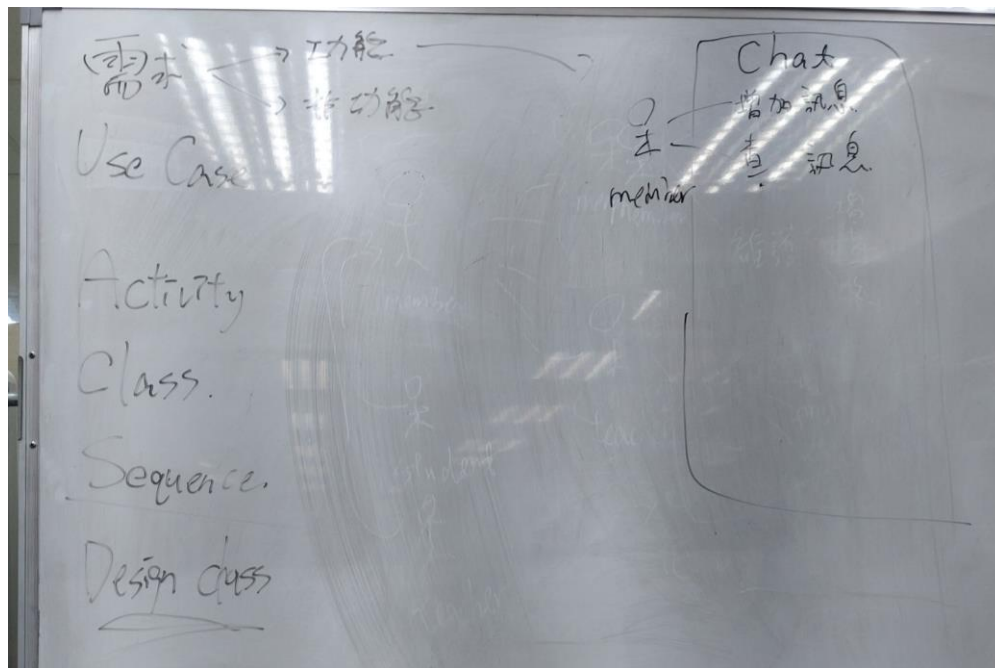 需求 功能
非功能
Use Case
Activity
Class.
Sequence.
Design class
Chat
增加訊息
查 訊息
member
member
student